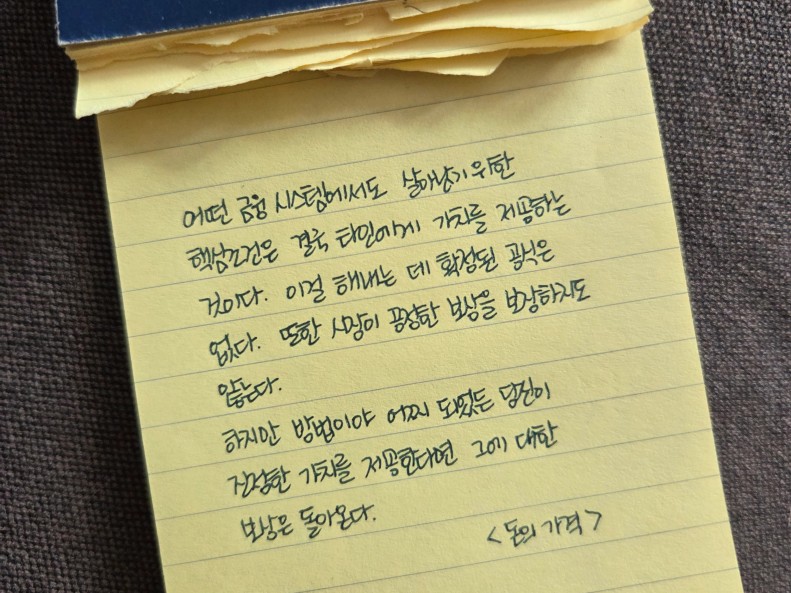 어떤 금융 시스템에서도 살아남기 위한
핵심조건은 결국 타인에게 가치를 제공하는
것이다. 이걸 해내는 데 확정된 공식은
없다. 또한 시장이 공정한 보상을 보장하지도
않는다.
하지만 방법이야 어찌 되었든 당신이
진정한 가치를 제공한다면 그에 대한
보상은 돌아온다.
<돈의 가격>